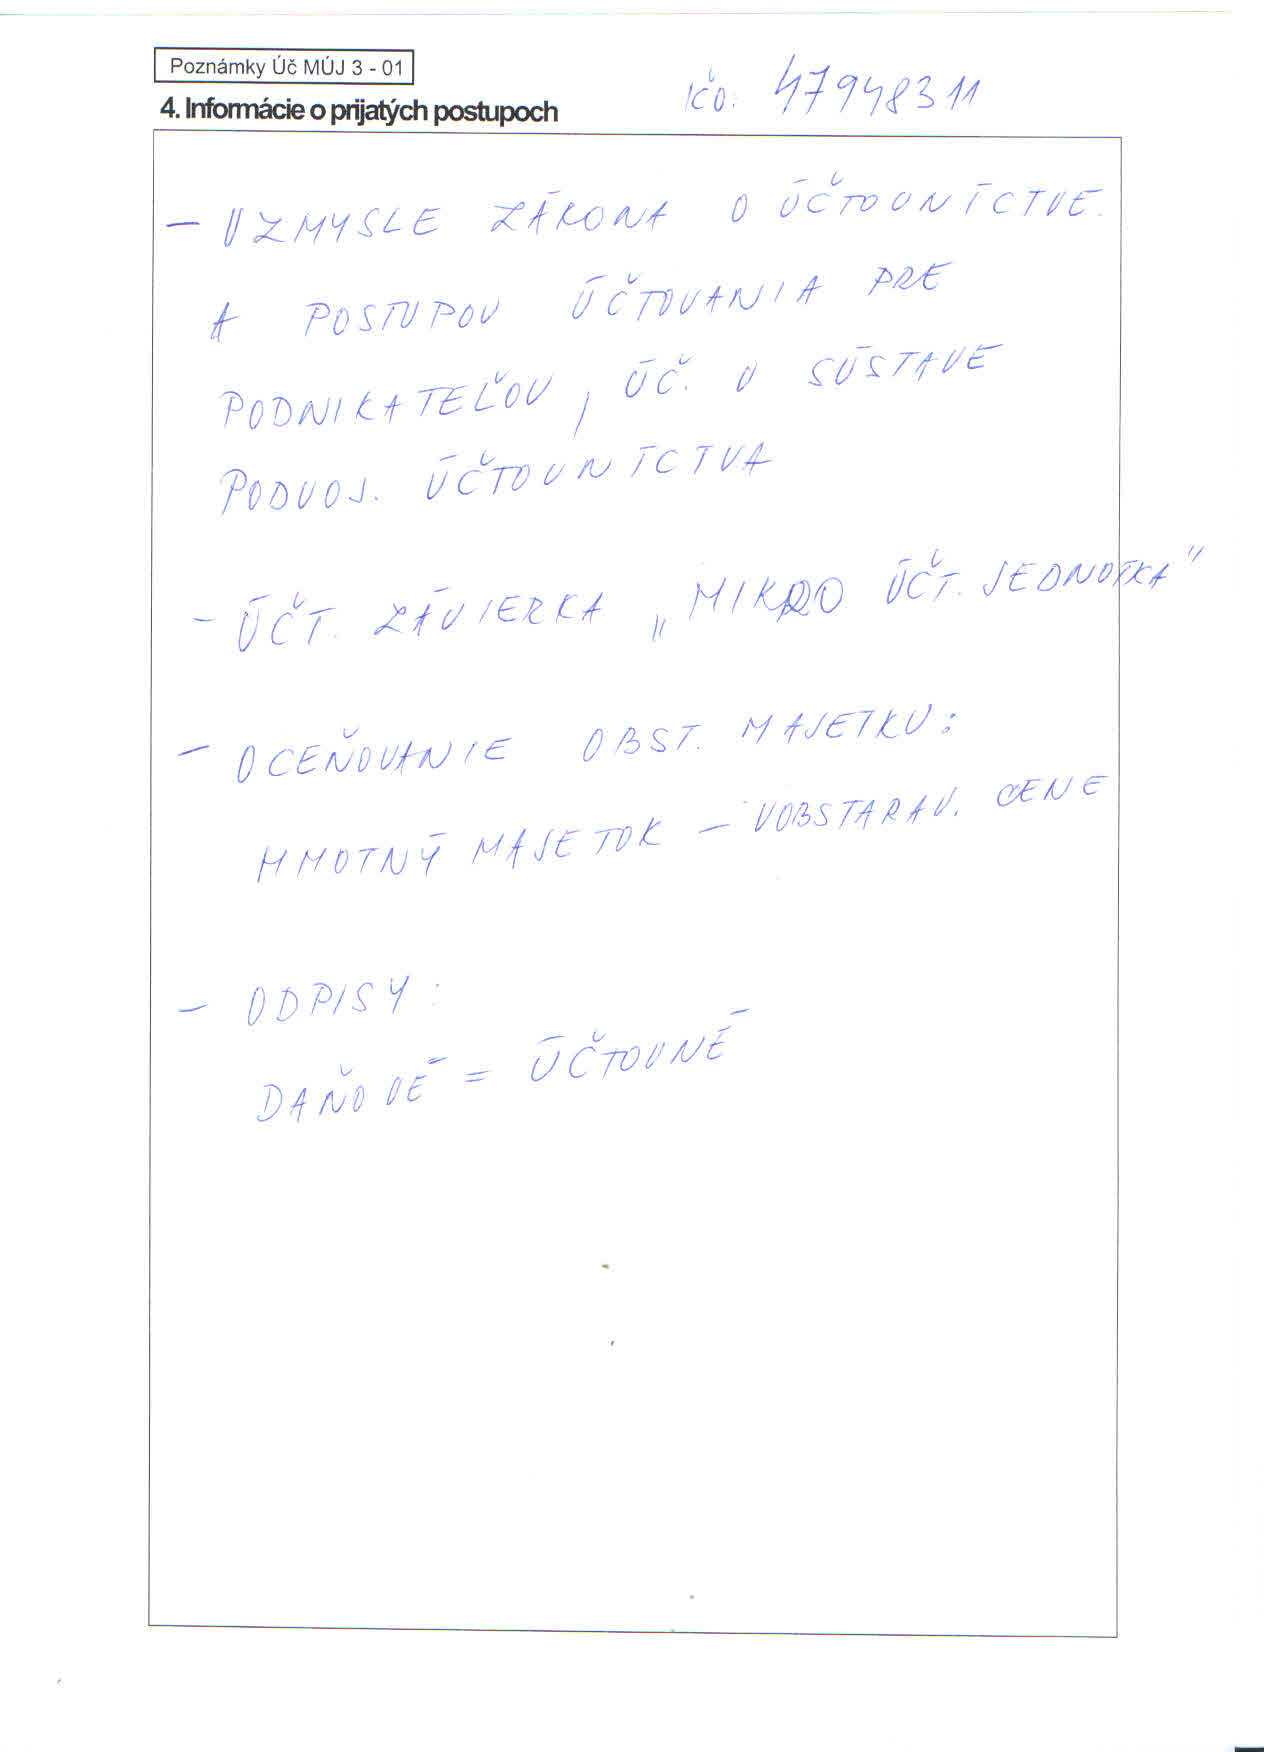 Poznámky Úč MÚJ 3 - 01
IČO: 47948311
4. Informácie o prijatých postupoch
- V ZMYSLE ZÁKONA O ÚČTOVNÍCTVE.
A POSTUPOV ÚČTOVANIA PRE
PODNIKATEĽOV, ÚČ. V SÚSTAVE
PODVOJ. ÚČTOVNÍCTVA
- ÚČT. ZÁVIERKA „MIKRO ÚČT. JEDNOTKA"
- OCEŇOVANIE OBST. MAJETKU:
HMOTNÝ MAJETOK - V OBSTARAV. CENE
- ODPISY:
DAŇOVÉ = ÚČTOVNÉ